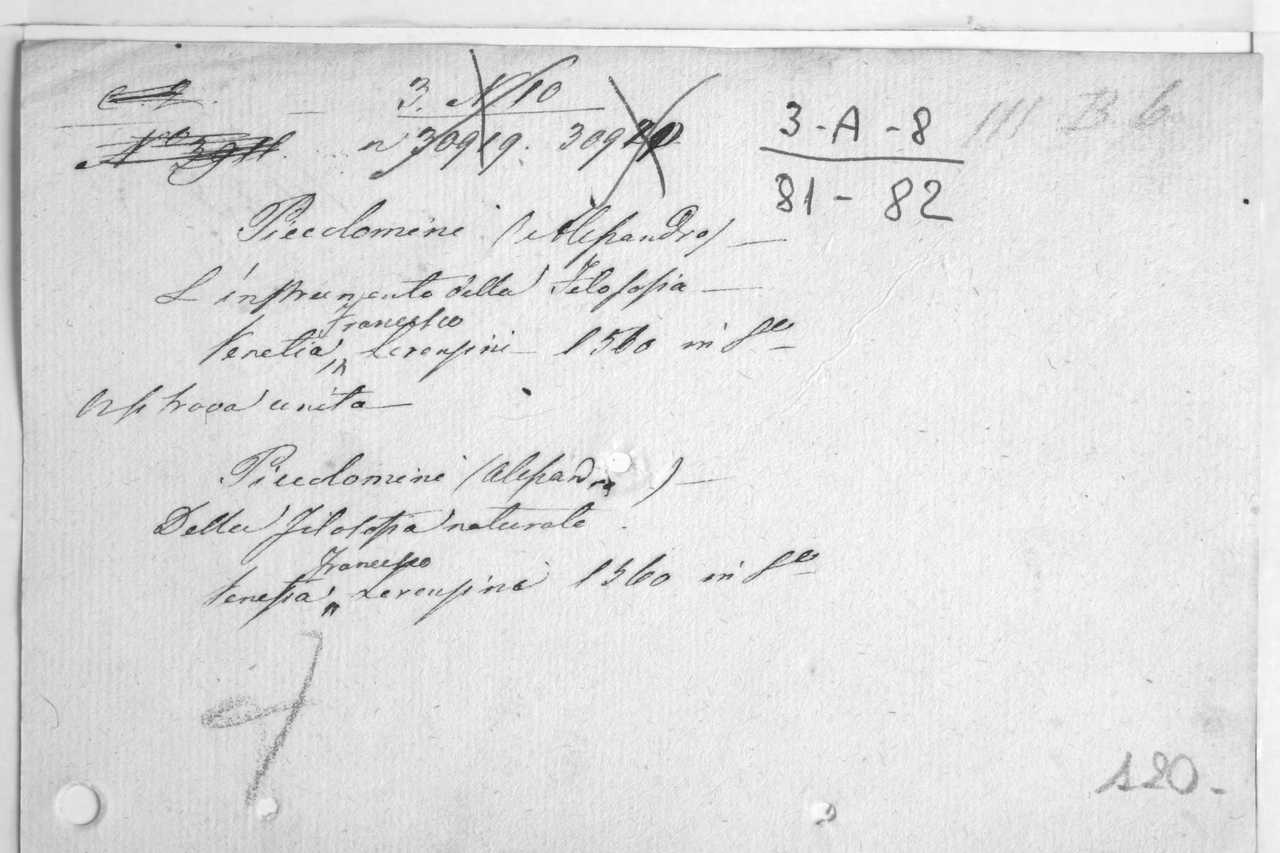 3. N 10
n 30919. 30920
3-A-8
81-82
III B 6
Piccolomini (Alessandro)
L'instrumento della Filosofia
Francesco
Venetia, Lorenzini 1560 in 8º
Si trova unita
Piccolomini (Alessandro)
Della filosofia naturale
Francesco
Venetia, Lorenzini 1560 in 8º
120-